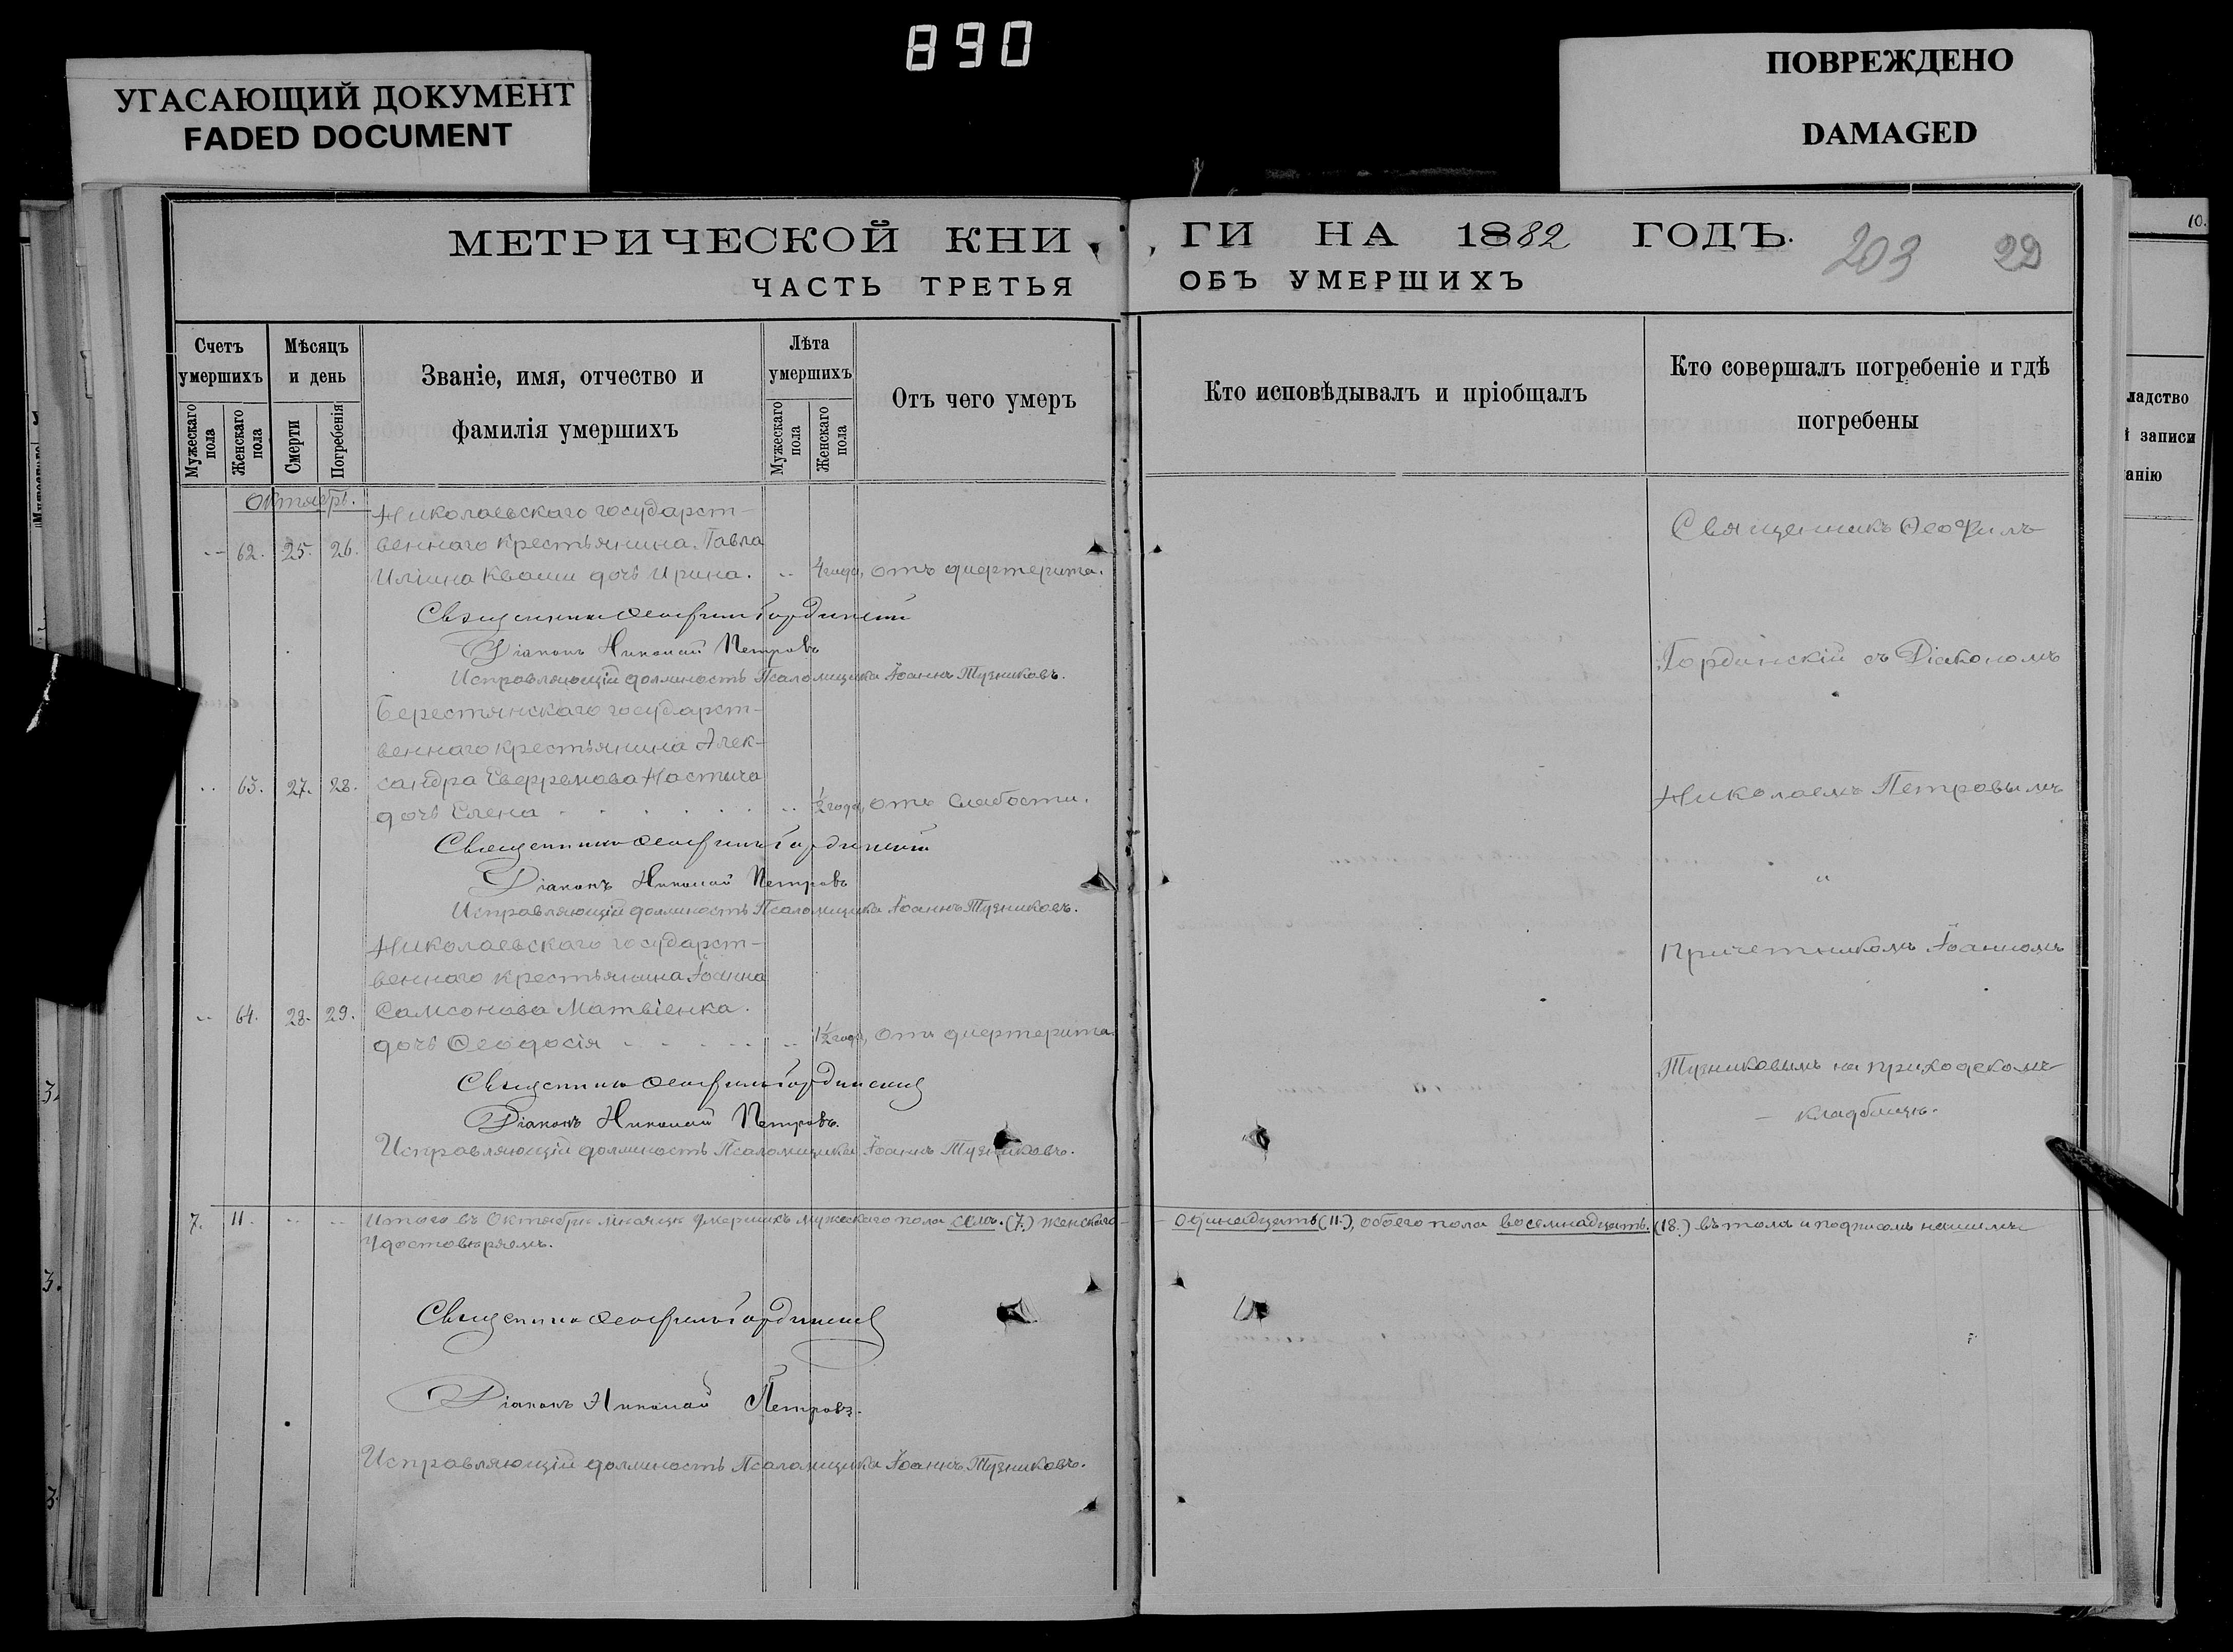 890
УГАСАЮЩИЙ ДОКУМЕНТ
FADED DOCUMENT
ПОВРЕЖДЕНО
DAMAGED
МЕТРИЧЕСКОЙ КНИ
ГИ НА 1882 ГОДЪ.
203 22
ЧАСТЬ ТРЕТЬЯ
ОБЪ УМЕРШИХЪ
Счетъ умершихъ
Мужескаго пола
Женскаго пола
Мѣсяцъ и день
Смерти
Погребенія
Званіе, имя, отчество и
фамилія умершихъ
Лѣта умершихъ
Мужескаго пола
Женскаго пола
Отъ чего умеръ
Кто исповѣдывалъ и пріобщалъ
Кто совершалъ погребеніе и гдѣ
погребены
10.
ладство
й записи
анію
Октябрь.
Николаевскаго государст-
62. 25. 26. веннаго крестьянина Павла
Иліина Кваши дочь Ирина. 4 года, отъ дифтерита.
Священникъ Ѳеофилъ Гординскій
Діаконъ Николай Петровъ
Исправляющій должность Псаломщика Іоаннъ Тузниковъ.
Берестянскаго государст-
веннаго крестьянина Алек-
63. 27. 28. сандра
дочь Елена ½ года, отъ слабости.
Священникъ Ѳеофилъ Гординскій
Діаконъ Николай Петровъ
Исправляющій должность Псаломщика Іоаннъ Тузниковъ.
Николаевскаго государст-
веннаго крестьянина Іоанна
64. 28. 29. Самсонова Матвіенка.
дочь Ѳеодосія 1½ года, отъ дифтерита.
Священникъ Ѳеофилъ Гординскій
Діаконъ Николай Петровъ.
Исправляющій должность Псаломщика Іоаннъ Тузниковъ.
Священникъ Ѳеофилъ
Гординскій съ Діакономъ
Николаемъ Петровымъ
Причетникомъ Іоанномъ
Тузниковымъ на приходскомъ
кладбищѣ.
7. 11. Итого въ Октябрѣ мѣсяцѣ умершихъ мужескаго пола семь. (7.) женскаго одинадцать (11.), обоего пола восемнадцать. (18.) въ томъ и подписомъ нашимъ
Удостовѣряемъ.
Священникъ Ѳеофилъ Гординскій
Діаконъ Николай Петровъ.
Исправляющій должность Псаломщика Іоаннъ Тузниковъ.